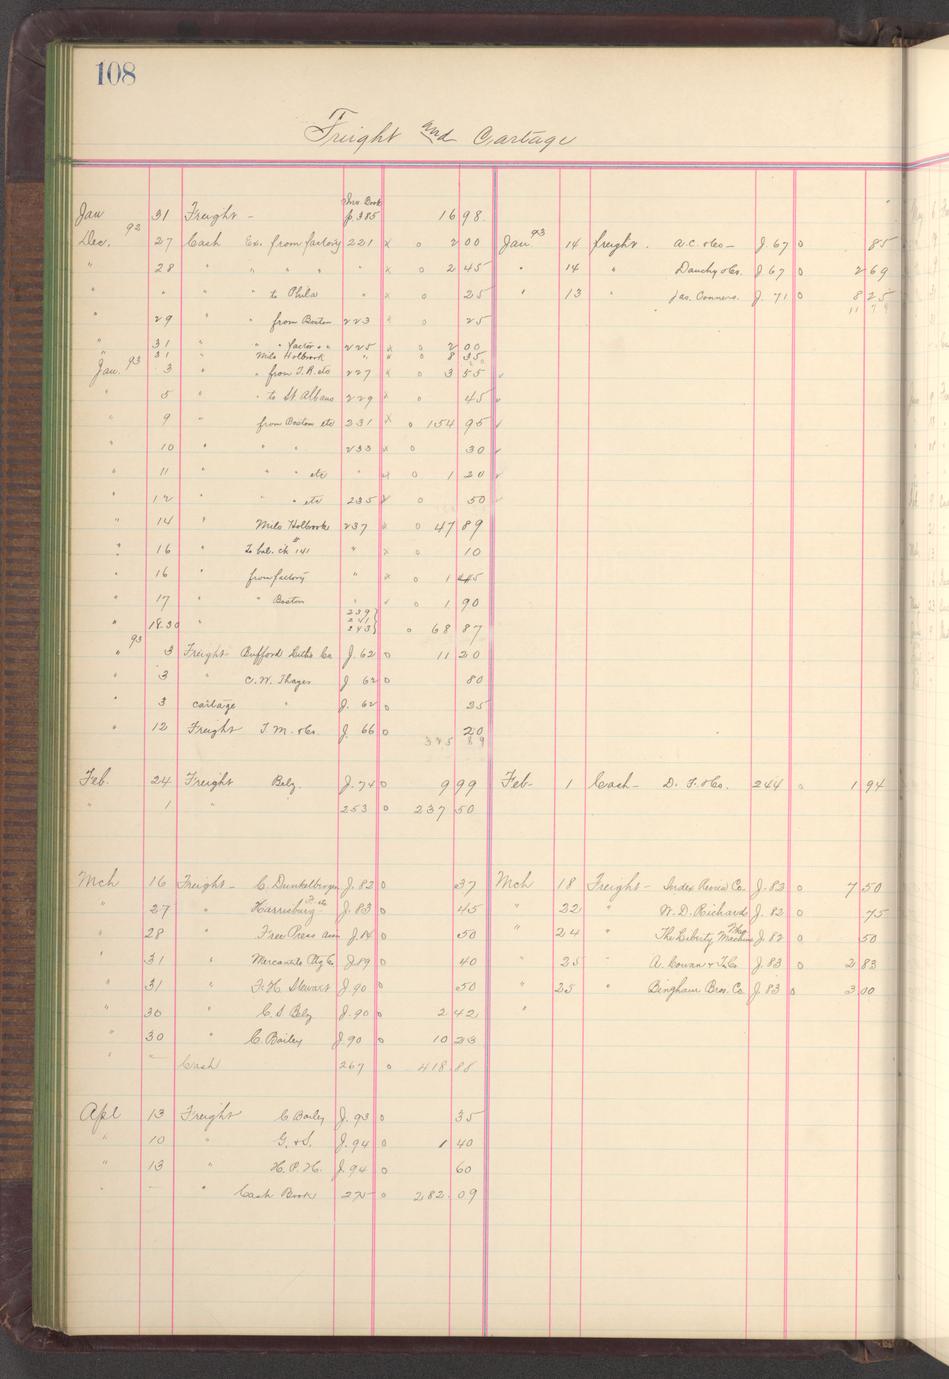 108
Freight and Cartage
Jan 31 Freight - Inv. Book p 385 16 98
Dec. 92 27 Cash Ex. from factory 221 x o 2 00
" 28 " " " " " x o 2 45
" " " " to Phila " x o 25
" 29 " " from Boston 223 x o 25
" 31 " " " factor " " 225 x o 2 00
" 31 " Milo Holbrook " " o 8 35
Jan. 93 3 " " from T.R. etc 227 x o 3 55
" 5 " " to St Albans 229 x o 45
" 9 " from Boston etc 231 x o 154 95
" 10 " " " 233 x o 30
" 11 " " " etc " x o 1 20
" 12 " " etc 235 x o 50
" 14 " Milo Holbrook 237 x o 47 89
" 16 " To bal. ck # 141 " x o 10
" 16 " from factory " x o 1 45
" 17 " " Boston " o 1 90
" 18.30 " 239 241 243 } o 68 87
" 93 3 Freight- Bufford Litho Co J. 62 o 11 20
" 3 " C.W. Thayer J 62 o 80
" 3 cartage " J. 62 o 25
" 12 Freight T.M. & Co. J. 66 o 20
325 89
Feb. 24 Freight Belg. J. 74 o 9 99
" 1 " 253 o 237 50
Mch 16 Freight - C. Dunkelberger J. 82 o 37
" 27 " Harrisburg J. 83 o 45
" 28 " Free Press assn J. 84 o 50
" 31 " Mercantile J. 89 o 40
" 31 " F.H. Stewart J. 90 o 50
" 30 " C.S. Belg J. 90 o 2 42
" 30 " C. Bailey J. 90 o 10 23
" " Cash 267 o 418 88
Apl 13 Freight C Bailey J. 93 o 35
" 10 " G. & S. J. 94 o 1 40
" 13 " H.P.H. J. 94 o 60
" " " Cash Book 275 o 282 09
Jan 93 14 freight. A.C. & Co - J. 67 o 85
" 14 " Dauchy & Co. J 67 o 2 69
" 13 " Jas. Conners. J. 71 o 8 25
11 79
Feb- 1 Cash - D. F. & Co. 244 o 1 94
Mch 18 Freight - Index Review Co. J. 83 o 7 50
" 22 " W. D. Richards J. 82 o 75
" 24 " The Liberty Machine J. 82 o 50
" 25 " A. Cowan & Co J. 83 o 2 83
" 25 " Bingham Bros. Co J. 83 o 3 00
"